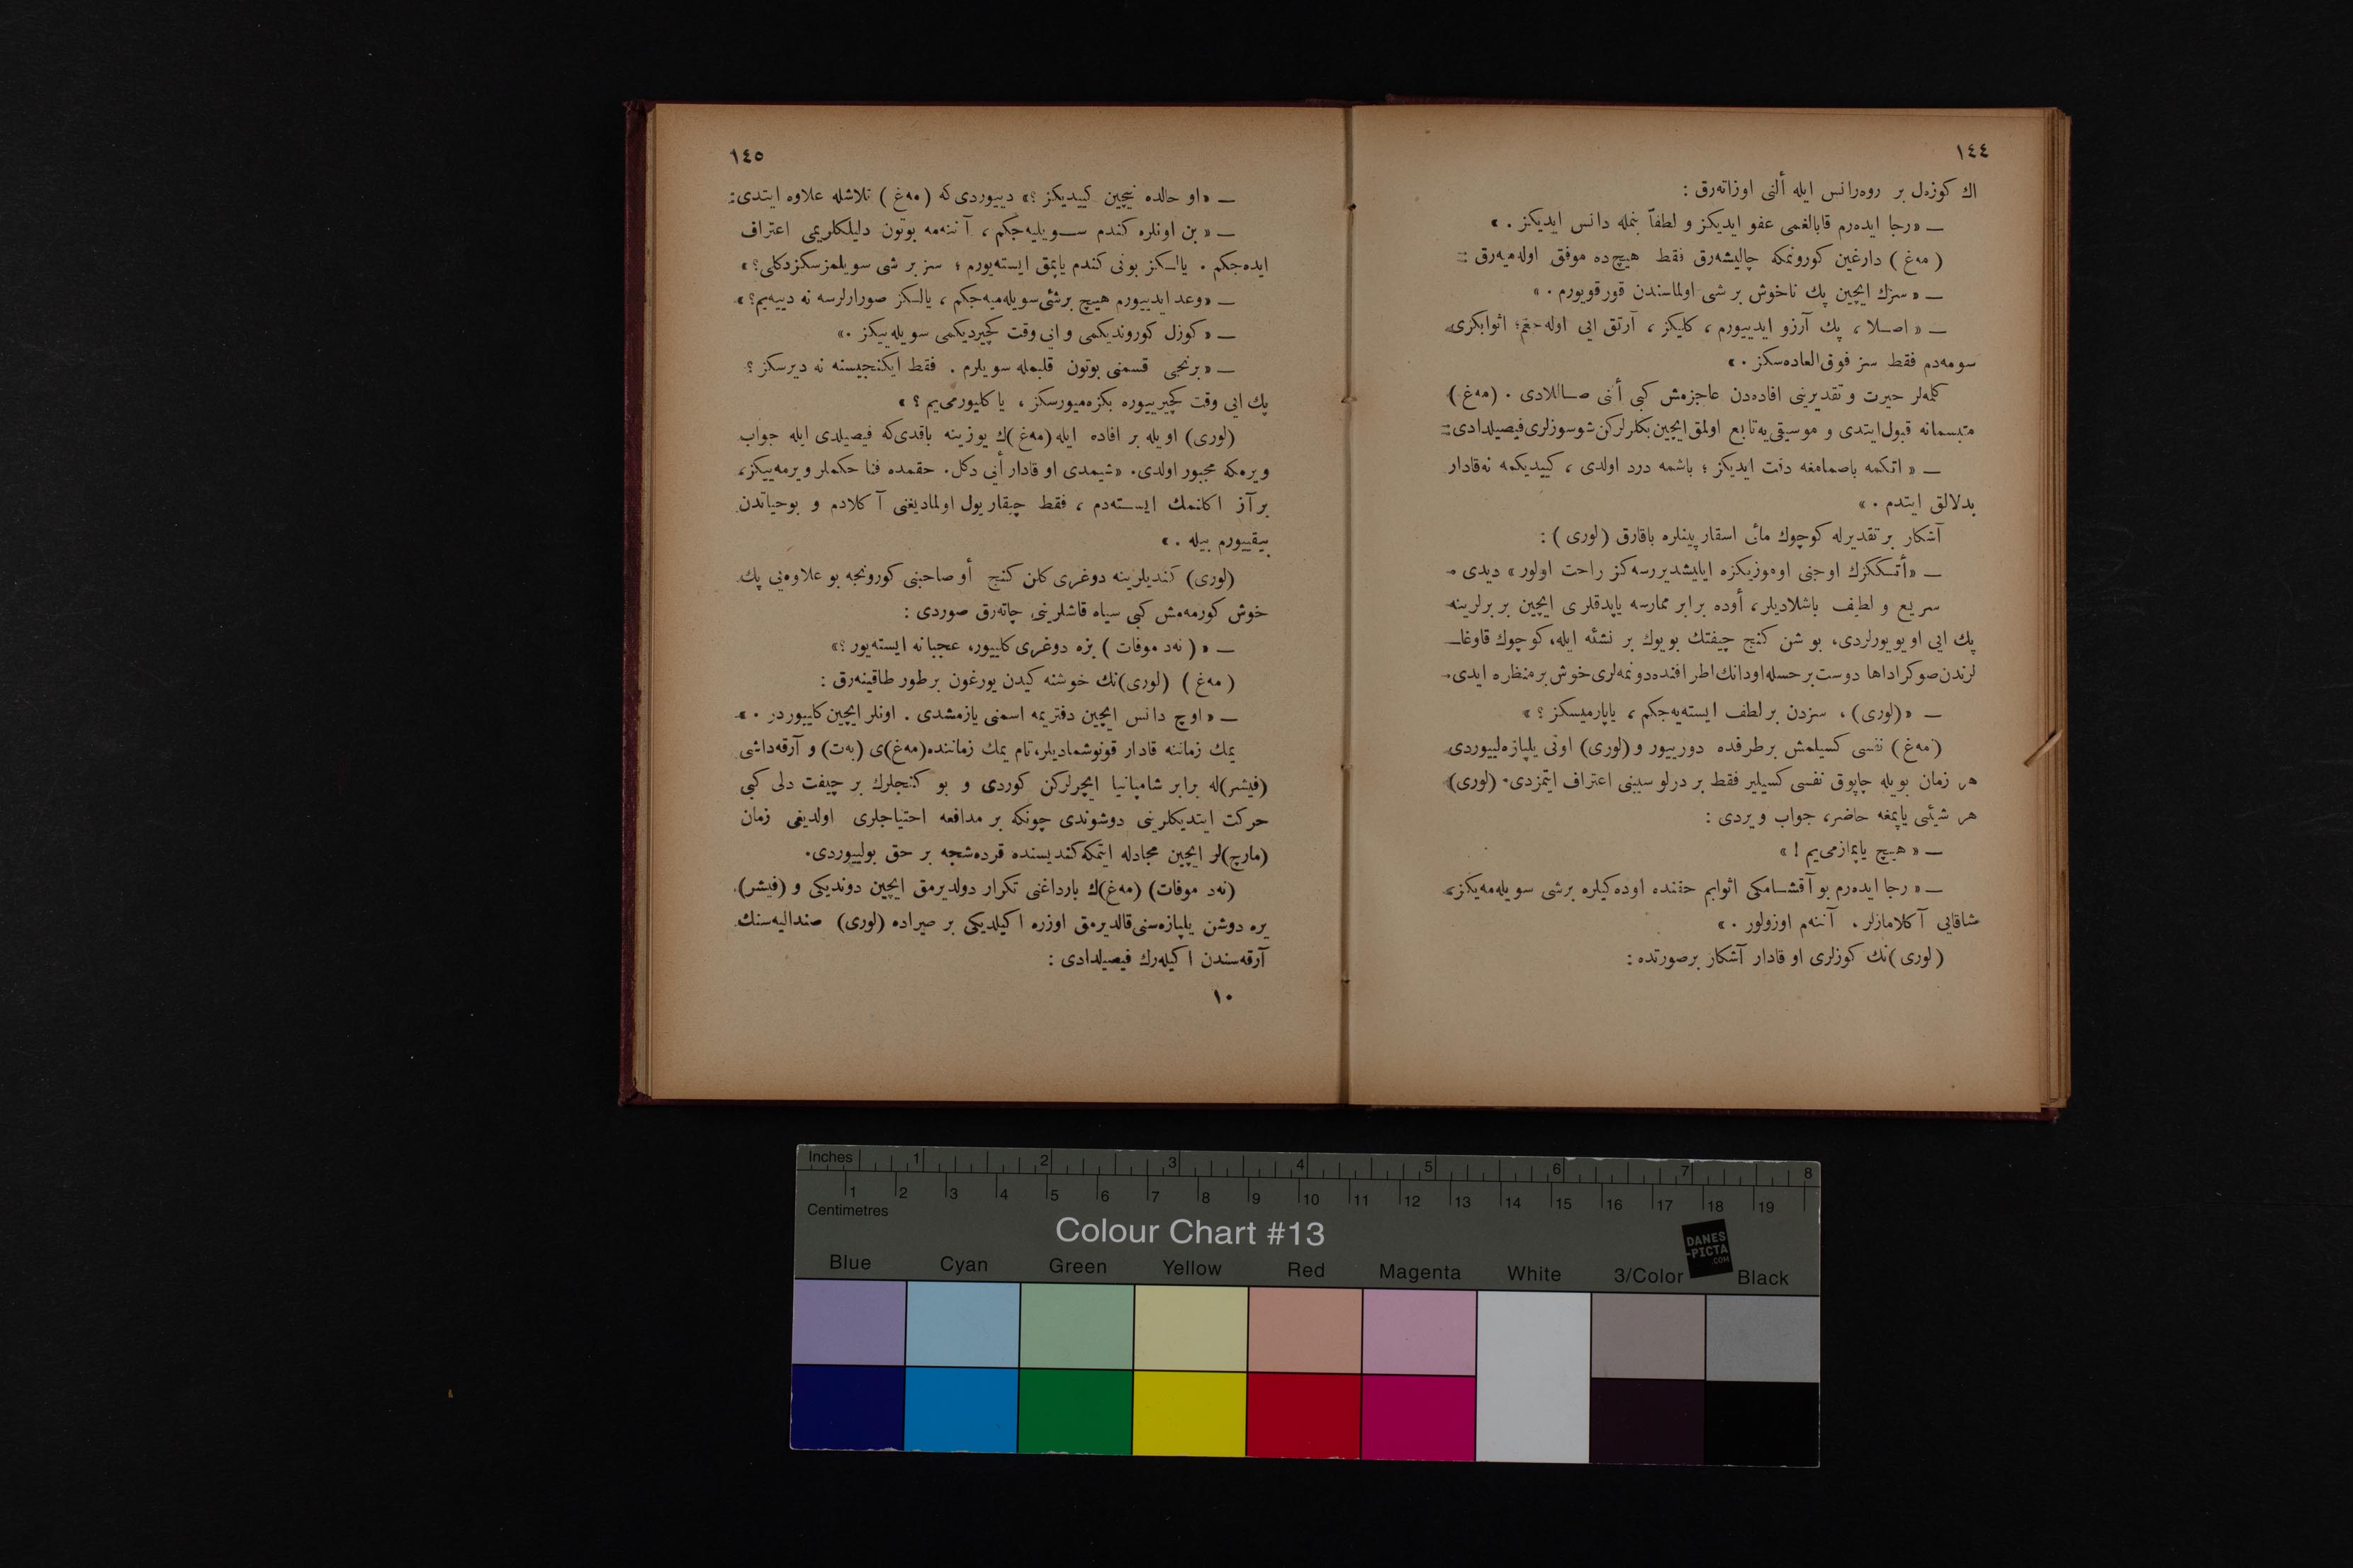 ١٤٤
اك كوزەل بر روەرانس ايله ألنى اوزاتەرق :
— « رجا ايدەرم قابالغمى عفو ايديكز و لطفاً بنمله دانس ايديكز . »
( مەغ ) دارغين كورونمكه چاليشەرق فقط هيچ دە موفق اولەميەرق :
— « سزك ايچين پك ناخوش بر شى اولماسندن قورقويورم . »
— « اصلا ، پك آرزو ايدييورم ، كليكز ، آرتق ايى اولەجغم ؛ اثوابكزى
سومەدم فقط سز فوق العادەسكز . »
كلمەلر حيرت و تقديرينى افادەدن عاجزمش كبى ألنى صاللادى . ( مەغ )
متبسمانه قبول ايتدى و موسيقى يه تابع اولمق ايچين بكلرلركن شو سوزلرى فيصيلدادى :
— « اتكمه باصمامغه دقت ايديكز ؛ باشمه درد اولدى ، كييديكمه نەقادار
بدلالق ايتدم . »
آشكار بر تقديرله كوچوك مائى اسقارپينلره باقارق ( لورى ) :
— « أتككزك اوجنى اوموزيكزه ايليشديررسەكز راحت اولور » ديدى .
سريع و لطيف باشلاديلر ، أوده برابر ممارسه ياپدقلرى ايچين بر برلرينه
پك ايى اويويورلردى ، بو شن كنج چيفتك بويوك بر نشئه ايله ، كوچوك قاوغا-
لرندن صوكرا داها دوست بر حسله اودانك اطرافنده دونمەلرى خوش بر منظره ايدى .
— « (لورى) ، سزدن بر لطف ايستەيەجكم ، ياپارميسكز ؟ »
(مەغ) نفسى كسيلمش بر طرفده دورييور و (لورى) اونى يلپازەلييوردى
هر زمان بويله چاپوق نفسى كسيلير فقط بر درلو سببنى اعتراف ايتمزدى . (لورى)
هر شيئى ياپمغه حاضر ، جواب ويردى :
— « هيچ ياپمازمى يم ! »
— « رجا ايدەرم بو آقشامكى اثوابم حقنده اودەكيلره برشى سويلەمەيكز ،
شاقايى آكلامازلر ، آننەم اوزولور . »
(لورى) نك كوزلرى او قادار آشكار بر صورتده :
١٤٥
— « او حالده نيچين كييديكز ؟ » دييوردى كه ( مەغ ) تلاشله علاوه ايتدى :
— « بن اونلره كندم سويليەجكم ، آننەمه بوتون دليلكلريمى اعتراف
ايدەجكم . يالكز بونى كندم ياپمق ايستەيورم ؛ سز بر شى سويلمزسكز دكلى ؟ »
— « وعد ايدييورم هيچ برشئى سويلەميەجكم ، يالكز صورارلرسه نه دييەيم ؟ »
— « كوزل كورونديكمى و ايى وقت كچيرديكمى سويلەييكز . »
— « برنجى قسمنى بوتون قلبمله سويلرم . فقط ايكنجيسنه نه ديرسكز ؟
پك ايى وقت كچيرييوره بكزەميورسكز ، ياكليورمى يم ؟ »
(لورى) اويله بر افاده ايله (مەغ)ك يوزينه باقدى كه فيصيلدى ايله جواب
ويرمكه مجبور اولدى . « شيمدى او قادار أيى دكل . حقمده فنا حكملر ويرمەييكز ،
بر آز اكلنمك ايستەدم ، فقط چيقار يول اولماديغنى آكلادم و بو حياتدن
بيقييورم بيله . »
(لورى) كنديلرينه دوغرى كلن كنج أو صاحبنى كورونجه بو علاوەيى پك
خوش كورمەمش كبى سياه قاشلرينى چاتەرق صوردى :
— « ( نەد موفات ) بزه دوغرى كلييور ، عجبا نه ايستەيور ؟ »
( مەغ ) (لورى)نك خوشنه كيدن يورغون بر طور طاقينەرق :
— « اوچ دانس ايچين دفتريمه اسمنى يازمشدى . اونلر ايچين كلييوردر . »
يمك زماننه قادار قونوشماديلر ، تام يمك زماننده (مەغ)ى (بەت) و آرقەداشى
(فيشر)له برابر شامپانيا ايچرلركن كوردى و بو كنجلرك بر چيفت دلى كبى
حركت ايتديكلرينى دوشوندى چونكه بر مدافعه احتياجلرى اولديغى زمان
(مارچ)لر ايچين مجادله ايتمكه كنديسنده قردەشجه بر حق بولييوردى .
(نەد موفات) (مەغ)ك بارداغنى تكرار دولديرمق ايچين دونديكى و (فيشر)
يره دوشن يلپازەسنى قالديرمق اوزره اكيلديكى بر صيراده (لورى) صنداليەسنك
آرقەسندن اكيلەرك فيصيلدادى :
١٠
Inches 1 2 3 4 5 6 7 8
1 2 3 4 5 6 7 8 9 10 11 12 13 14 15 16 17 18 19
Centimetres
Colour Chart #13
DANES
-PICTA
.COM
Blue Cyan Green Yellow Red Magenta White 3/Color Black